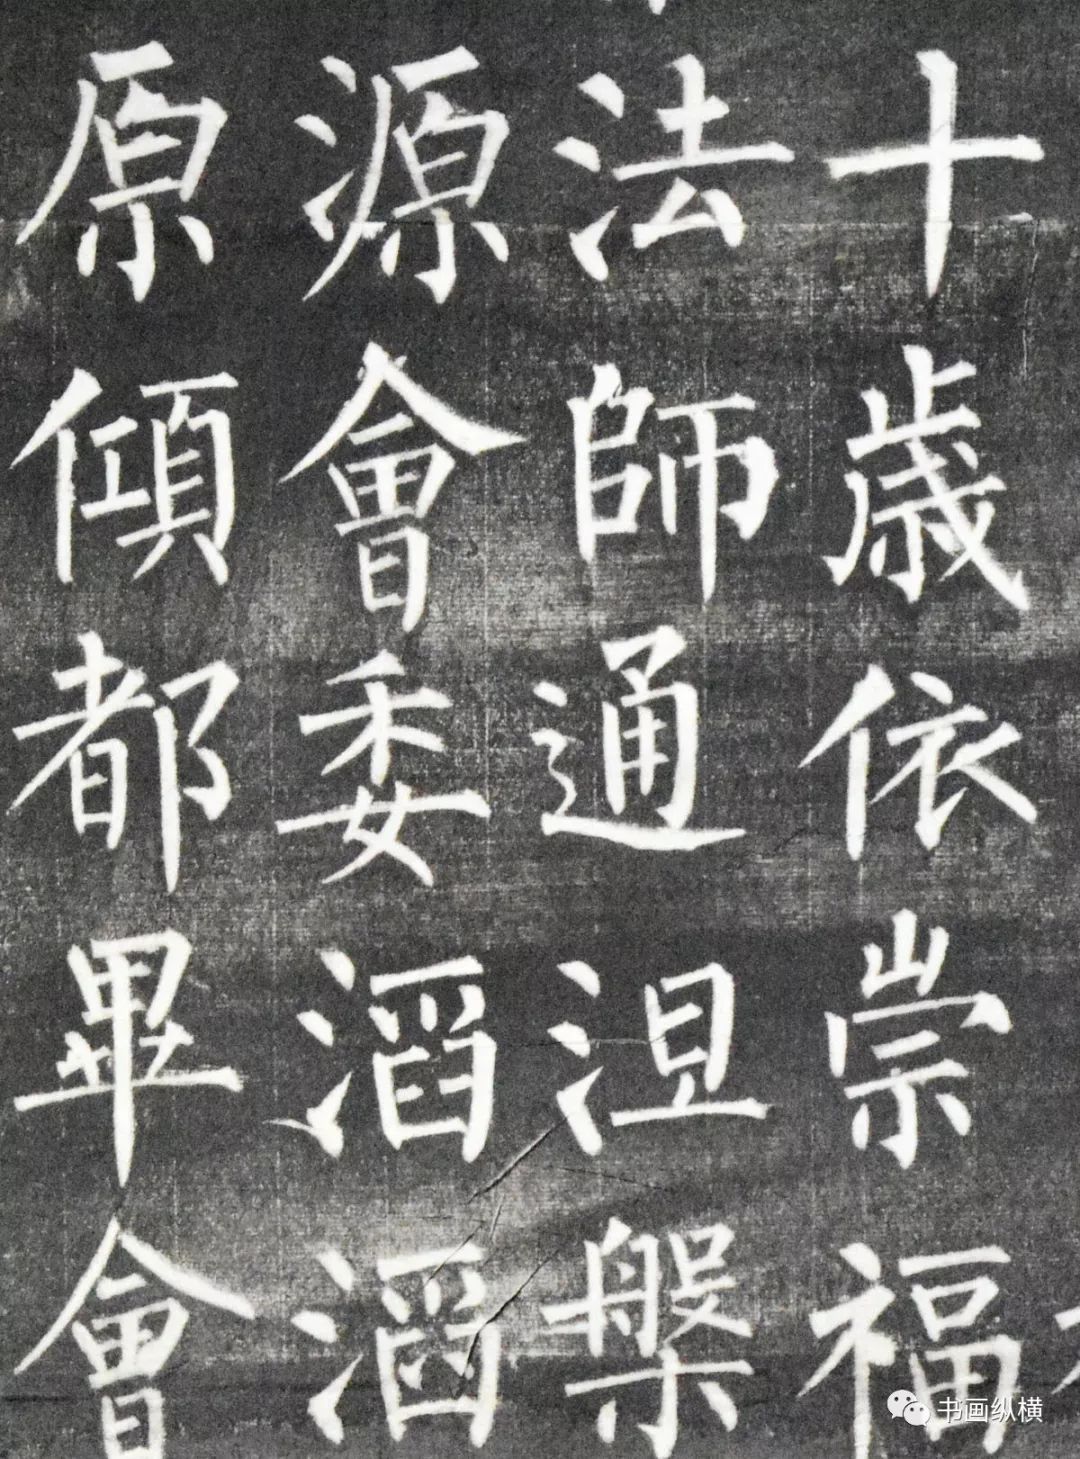 十歳依崇福
法師通涅槃
源會委滔滔
原傾都畢會
书画纵横